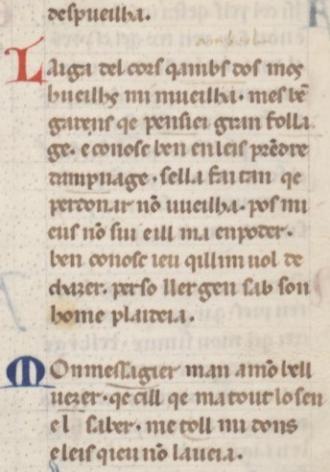 despueilha.
Laiga del cors qambs dos mos
hueilhs mi mueilha. mes bē
garens qe pensiei gran folla
ge. e conosc ben en leis prēdre
dampnage. sella fai tan qe
perdonar nō uueilha. pos mi
eus nō sui e ill ma en poder.
ben conosc ieu qill im uol de
chazer. per so ll er gen sab son
home plaidera.
Mon messagier man amō bell
uezer. qe cill qe ma tout lo sen
e l saber. me toll mi dons
e leis qieu nō lauera.